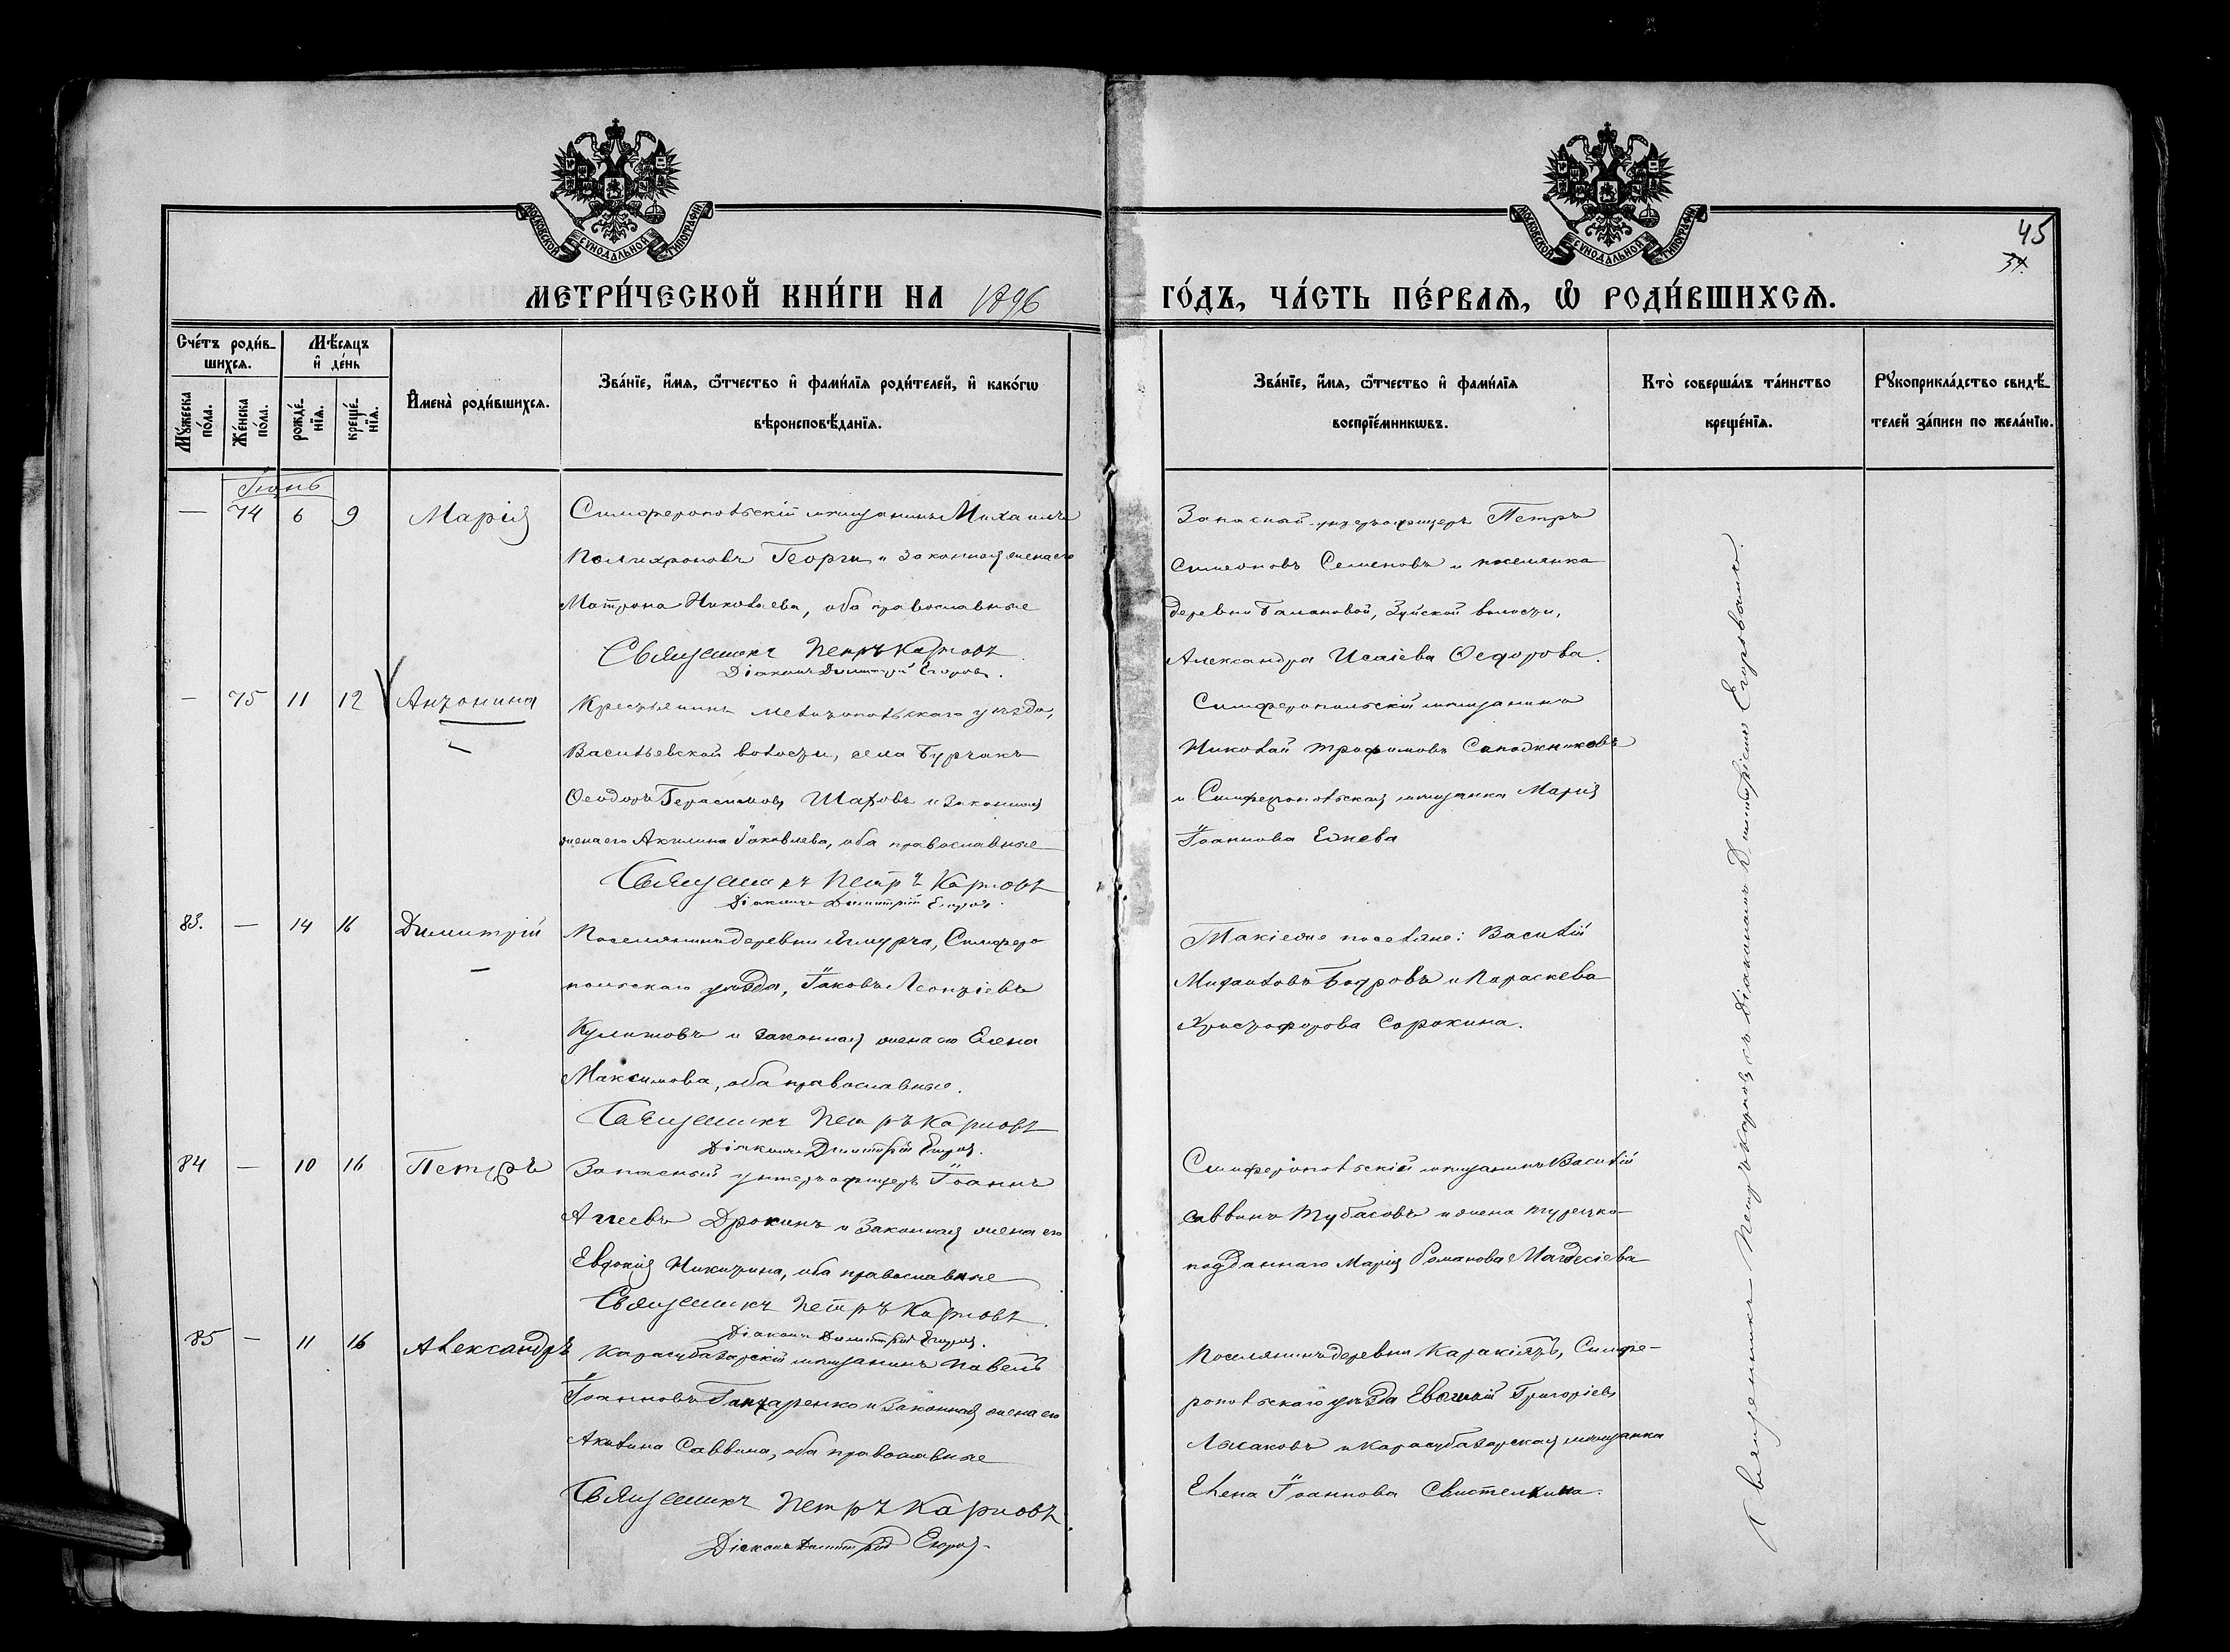 МОСКОВСКОЙ СѴНОДАЛЬНОЙ ТИПОГРАФІИ
МОСКОВСКОЙ СѴНОДАЛЬНОЙ ТИПОГРАФІИ
45
37.
МЕТРИ́ЧЕСКОЙ КНИ́ГИ НА 1896 ГО́ДЪ, ЧА́СТЬ ПЕ́РВАѦ, Ѽ РОДИ́ВШИХСѦ.
Сче́тъ роди́в-
шихся.
Мѣ́сяцъ
и҆ де́нь
Мꙋ́жеска
по́ла.
Же́нска
по́ла.
рожде́-
нїя.
креще́-
нїя.
И҆мена̀ роди́вшихся.
Зва́нїе, и҆́мя, ѻ҆́тчество и҆ фами́лїя роди́телей, и҆ како́гѡ
вѣроисповѣ́данїя.
Зва́нїе, и҆́мя, ѻ҆́тчество и҆ фами́лїя
воспрїе́мникѡвъ.
Кто̀ соверша́лъ та́инство
креще́нїя.
Рꙋкоприкла́дство свидѣ́-
телей за́писи по жела́нїю.
Іюнь
— 74 6 9 Марія
Симферопольскій мѣщанинъ Михаилъ
Полихроновъ Георги и законная жена его
Матрона Николаева, оба православные
Священникъ Петръ Карповъ
Діаконъ Димитрій Егоровъ.
Запасный унтеръ-офицеръ Петръ
Симеоновъ Семеновъ и поселянка
деревни Балановой, Зуйской волости,
Александра Исаіева Ѳедорова.
— 75 11 12 Антонина
Крестьянинъ Мелитопольскаго уѣзда,
Васильевской волости, села Бурчакъ
Ѳеодоръ Герасимовъ Шаховъ и законная
жена его Акилина Іаковлева, оба православные
Священникъ Петръ Карповъ
Діаконъ Димитрій Егоровъ.
Симферопольскій мѣщанинъ
Николай Трофимовъ Сапожниковъ
и Симферопольская мѣщанка Марія
Іоаннова Енева
83. — 14 16 Димитрій
Поселянинъ деревни Ягмурча, Симферо
польскаго уѣзда, Іаковъ Леонтіевъ
Кулишовъ и законная жена его Елена
Максимова, оба православные.
Священникъ Петръ Карповъ
Діаконъ Димитрій Егоровъ.
Такіеже поселяне: Василій
Михаиловъ Бодровъ и Параскева
Христофорова Сорокина.
84 — 10 16 Петръ
Запасный унтеръ офицеръ Іоаннъ
Агеевъ Дрокинъ и законная жена его
Евдокія Никитина, оба православные
Священникъ Петръ Карповъ.
Діаконъ Димитрій Егоровъ.
Симферопольскій мѣщанинъ Василій
Саввинъ Тубасовъ и жена турецко-
подданнаго Марія Романова
85 — 11 16 Александръ
Карасубазарскій мѣщанинъ Павелъ
Іоанновъ Гончаренко и законная жена его
Акилина Саввина, оба православные
Священникъ Петръ Карповъ.
Діаконъ Димитрій Егоровъ.
Поселянинъ деревни Каракіятъ, Симфе-
ропольскаго уѣзда Григоріевъ
Лысаковъ и Карасубазарская мѣщанка
Елена Іоаннова Свистелкина.
Священникъ Петръ Карповъ съ діакономъ Димитріемъ Егоровымъ.